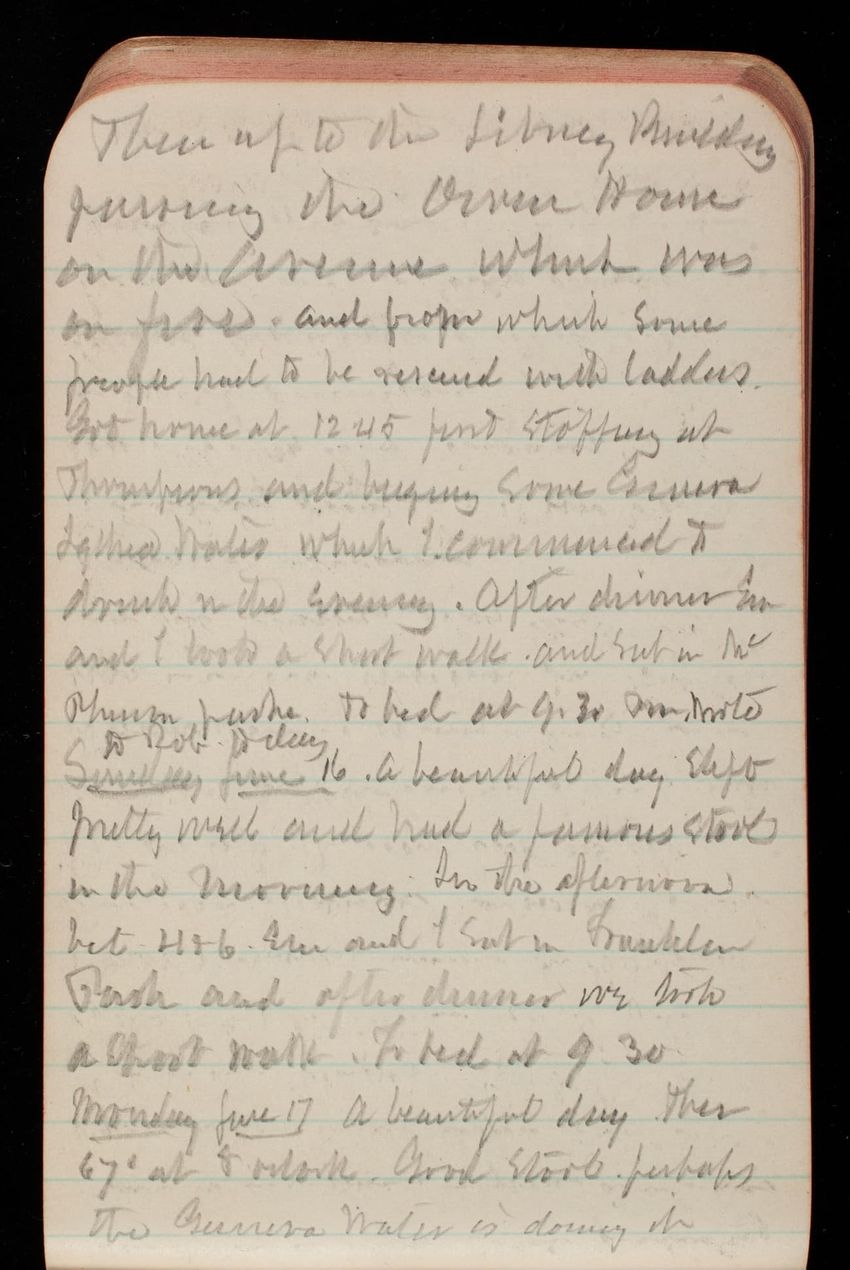 Then up to the Library Building
passing the Owen House
on the Avenue which was
on fire. and from which some
people had to be rescued with ladders.
Got home at 12 45 first stopping at
Thompsons and buying some Geneva
Lithia Water which I commenced to
drink in the evening. After dinner Em
and I took a short walk. and sat in the
park. To bed at 9.30 Em wrote
to Rob to day
Sunday June 16. A beautiful day Slept
pretty well and had a famous stool
in the morning. In the afternoon.
bet 4 & 6. Em and I sat in Franklin
Park and after dinner we took
a short walk. To bed at 9 30
Monday June 17 A beautiful day Ther
67° at 8 oclock. Good stool. perhaps
the Geneva Water is doing it